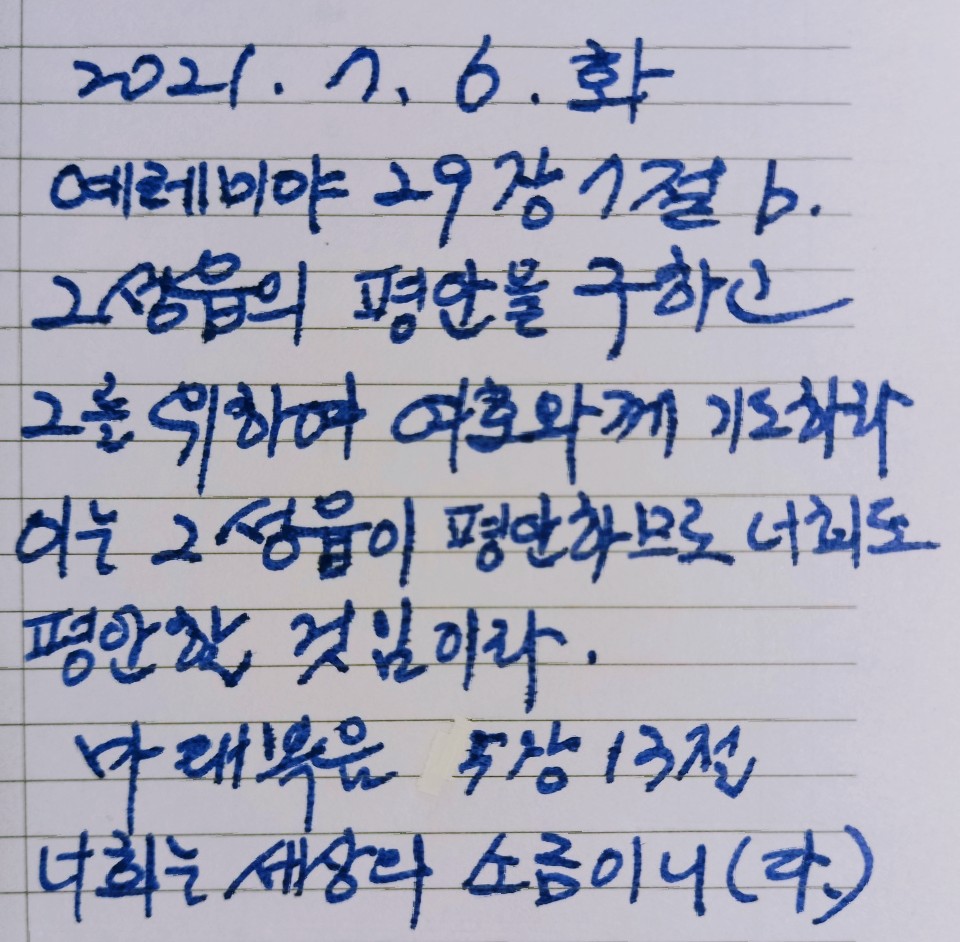 2021. 7. 6. 화
예레미야 29장 7절 b.
그 성읍의 평안을 구하고
그를 위하여 여호와께 기도하라
이는 그 성읍이 평안하므로 너희도
평안할 것임이라.
마태복음 5장 13절
너희는 세상의 소금이니(라.)